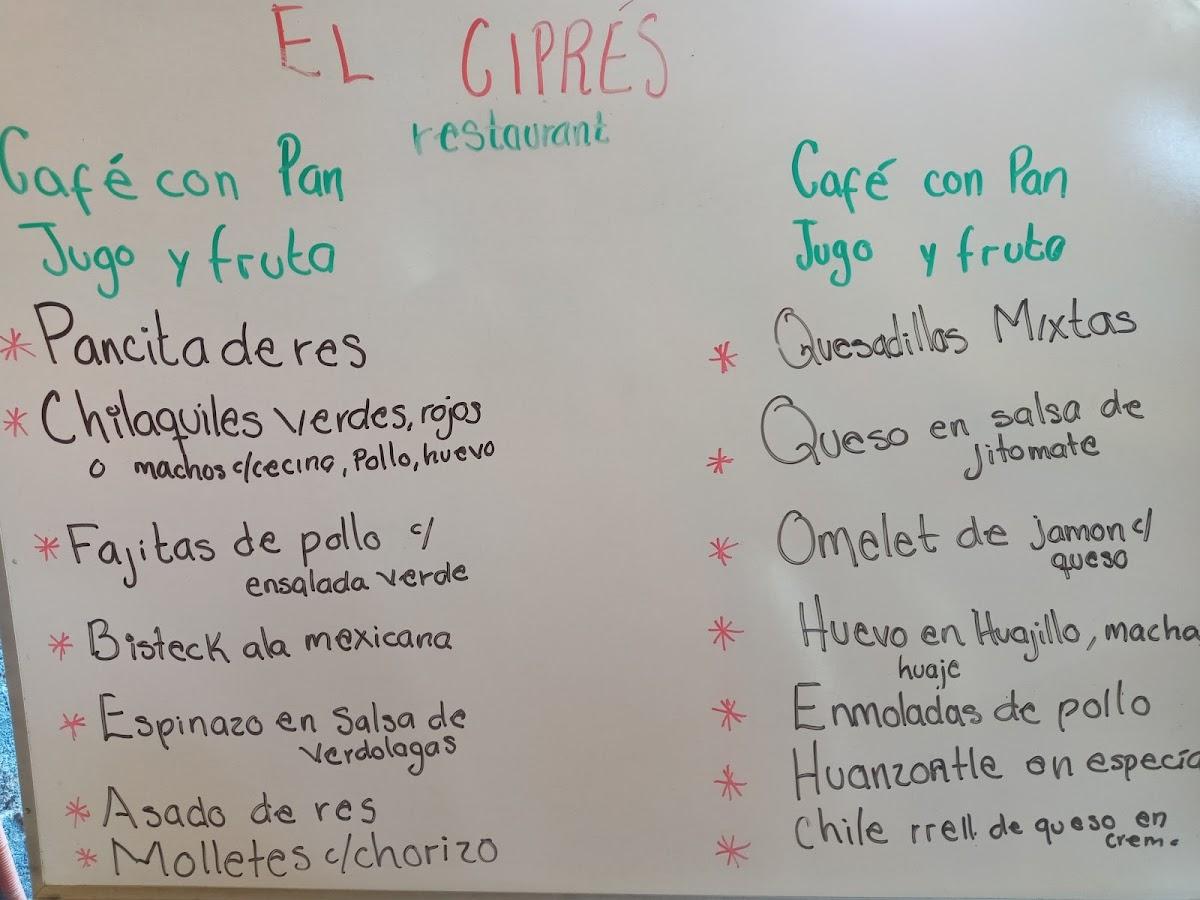 EL CIPRÉS
restaurant
Café con Pan
Jugo y fruta
* Pancita de res
* Chilaquiles verdes, rojos
o machos c/cecina, Pollo, huevo
* Fajitas de pollo c/
ensalada verde
* Bisteck ala mexicana
* Espinazo en Salsa de
verdolagas
* Asado de res
* Molletes c/chorizo
Café con Pan
Jugo y fruta
* Quesadillas Mixtas
* Queso en salsa de
jitomate
* Omelet de jamon c/
queso
* Huevo en Huajillo, macha
huaje
* Enmoladas de pollo
* Huanzontle en especia
* Chile rrell. de queso en
crema